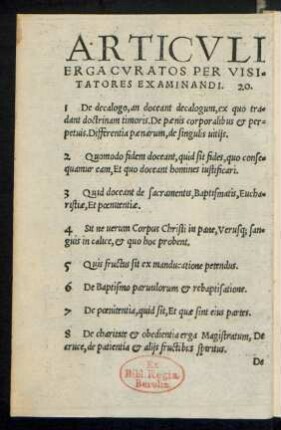 ARTICVLI
ERGA CVRATOS PER VISI-
TATORES EXAMINANDI. 20.
1 De decalogo, an doceant decalogum, ex quo tra-
dant doctrinam timoris. De pœnis corporalibus & per-
petuis. Differentia pœnarum, de singulis uitijs.
2 Quomodo fidem doceant, quid sit fides, quo conse-
quantur eam, Et quo doceant homines iustificari.
3 Quid doceant de sacramentis, Baptismatis, Eucha-
ristiæ, Et pœnitentiæ.
4 Sit ne uerum Corpus Christi in pane, Verusq; san-
guis in calice, & quo hoc probent.
5 Quis fructus sit ex manducatione petendus.
6 De Baptismo paruulorum & rebaptisatione.
7 De pœnitentia, quid sit, Et quæ sint eius partes.
8 De charitate & obedientia erga Magistratum, De
cruce, de patientia & alijs fructibus spiritus.
De
Ex
Bibl. Regia
Berolin.